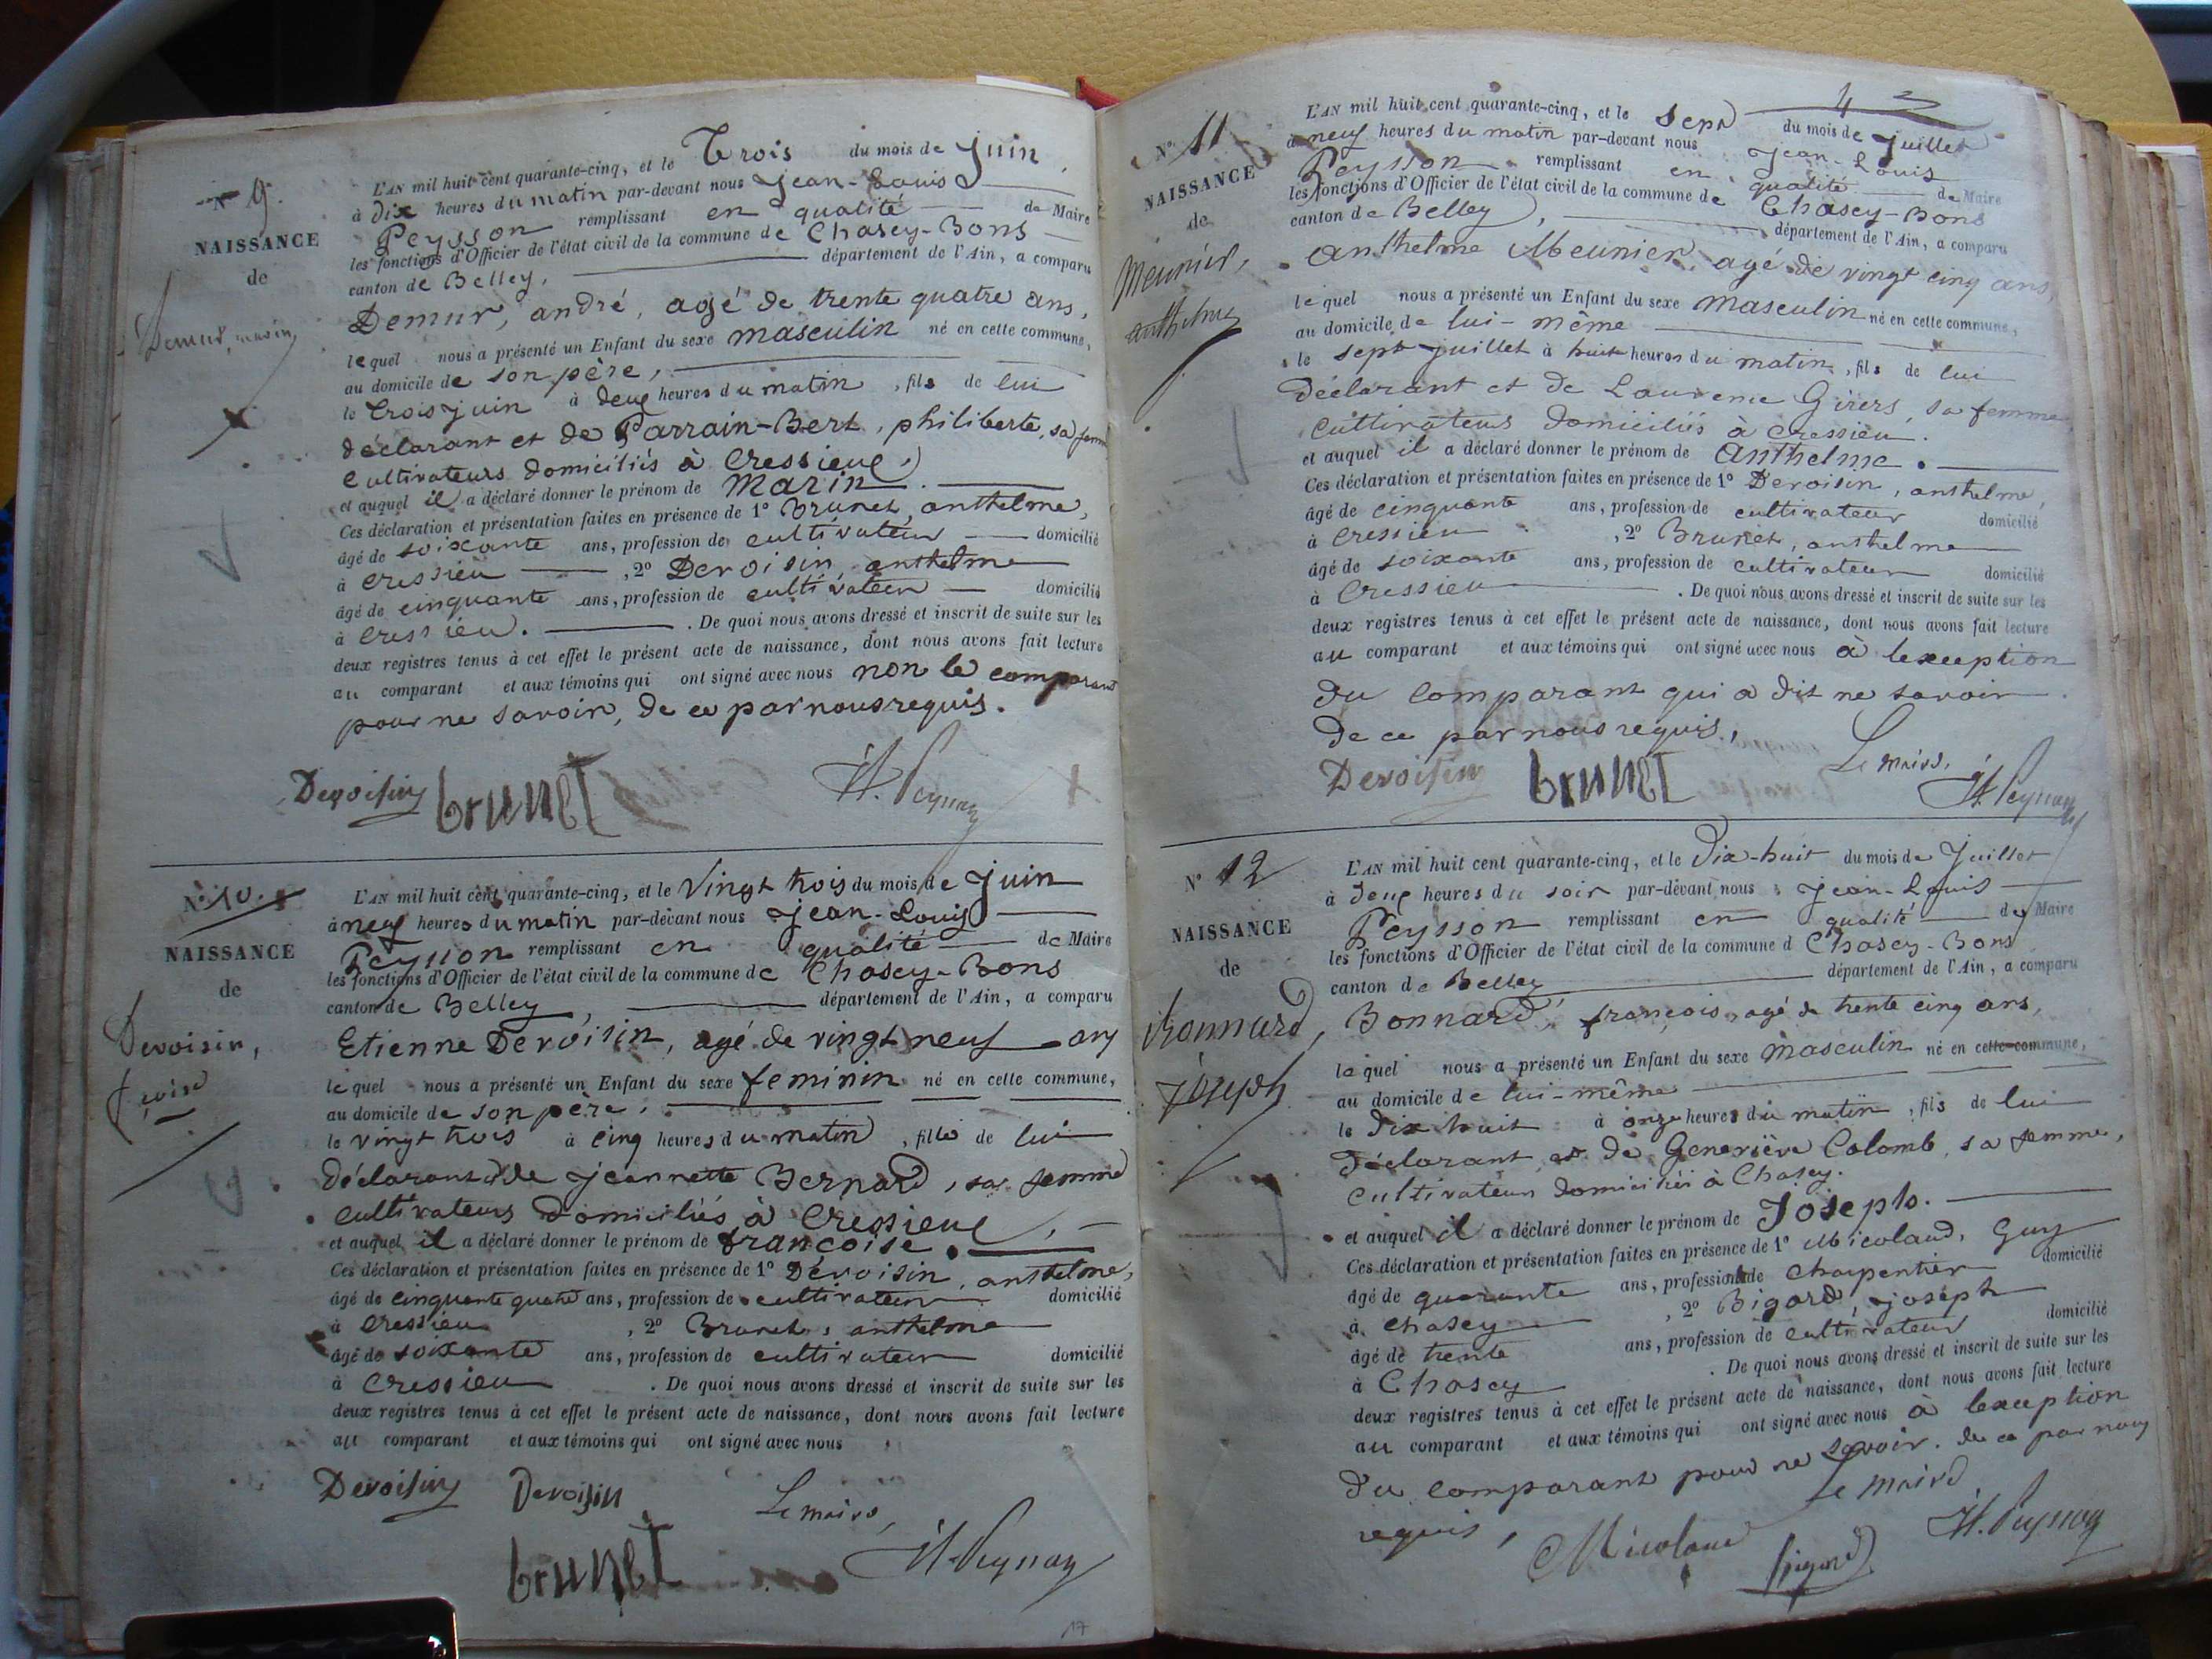 N° 9.
NAISSANCE
de
Demur, marin
L'AN mil huit cent quarante-cinq, et le Trois du mois de Juin
à Dix heures du matin par-devant nous Jean-Louis
Peysson remplissant en qualité de Maire
les fonctions d'Officier de l'état civil de la commune de Chasey-Bons
canton de Belley, département de l'Ain, a comparu
Demur, andré, agé de trente quatre ans,
lequel nous a présenté un Enfant du sexe masculin né en cette commune,
au domicile de son père,
le trois juin à deux heures du matin, fils de lui
déclarant et de Parrain-Bert, philiberte, sa femme
cultivateurs domiciliés à Cressieux
et auquel il a déclaré donner le prénom de Marin.
Ces déclaration et présentation faites en présence de 1° Brunet, anthelme,
âgé de soixante ans, profession de cultivateur domicilié
à Cressieu, 2° Devoisin, anthelme
âgé de cinquante ans, profession de cultivateur domicilié
à Cressieu. De quoi nous avons dressé et inscrit de suite sur les
deux registres tenus à cet effet le présent acte de naissance, dont nous avons fait lecture
au comparant et aux témoins qui ont signé avec nous non le comparant
pour ne savoir, de ce par nous requis.
Devoisin brunet
N° 10.
NAISSANCE
de
Devoisin,
L'AN mil huit cent quarante-cinq, et le Vingt trois du mois de Juin
à neuf heures du matin par-devant nous Jean-Louis
Peysson remplissant en qualité de Maire
les fonctions d'Officier de l'état civil de la commune de Chasey-Bons
canton de Belley, département de l'Ain, a comparu
Etienne Devoisin, agé de vingt neuf ans
lequel nous a présenté un Enfant du sexe feminin né en cette commune,
au domicile de son père,
le vingt trois à cinq heures du matin, fille de lui
déclarant & de Jeannette Bernard, sa femme
cultivateurs domiciliés à Cressieux,
et auquel il a déclaré donner le prénom de françoise.
Ces déclaration et présentation faites en présence de 1° Devoisin, anthelme,
âgé de cinquante quatre ans, profession de cultivateur domicilié
à Cressieu, 2° Brunet, anthelme
âgé de soixante ans, profession de cultivateur domicilié
à Cressieu. De quoi nous avons dressé et inscrit de suite sur les
deux registres tenus à cet effet le présent acte de naissance, dont nous avons fait lecture
au comparant et aux témoins qui ont signé avec nous
Devoisin Devoisin Le maire,
brunet
17
4
N° 11
NAISSANCE
de
Meunier,
anthelme
L'AN mil huit cent quarante-cinq, et le Sept du mois de Juillet
à neuf heures du matin par-devant nous Jean-Louis
Peysson remplissant en qualité de Maire
les fonctions d'Officier de l'état civil de la commune de Chasey-Bons
canton de Belley, département de l'Ain, a comparu
anthelme Meunier, agé de vingt cinq ans,
lequel nous a présenté un Enfant du sexe masculin né en cette commune,
au domicile de lui-même
le sept juillet à huit heures du matin, fils de lui
déclarant et de sa femme
cultivateurs domiciliés à Cressieu.
et auquel il a déclaré donner le prénom de Anthelme.
Ces déclaration et présentation faites en présence de 1° Devoisin, anthelme,
âgé de cinquante ans, profession de cultivateur domicilié
à Cressieu, 2° Brunet, anthelme
âgé de soixante ans, profession de cultivateur domicilié
à Cressieu. De quoi nous avons dressé et inscrit de suite sur les
deux registres tenus à cet effet le présent acte de naissance, dont nous avons fait lecture
au comparant et aux témoins qui ont signé avec nous à lexception
du comparant qui a dit ne savoir
de ce par nous requis,
Devoisin brunet Le maire,
N° 12
NAISSANCE
de
Bonnard,
Joseph
L'AN mil huit cent quarante-cinq, et le Dix-huit du mois de Juillet
à deux heures du soir par-devant nous Jean-Louis
Peysson remplissant en qualité de Maire
les fonctions d'Officier de l'état civil de la commune d Chasey-Bons
canton de Belley département de l'Ain, a comparu
Bonnard, françois, agé de trente cinq ans,
lequel nous a présenté un Enfant du sexe masculin né en cette commune,
au domicile de lui-même
le Dix huit à onze heures du matin, fils de lui
déclarant et de Geneviève Colomb, sa femme,
cultivateurs domiciliés à Chasey.
et auquel il a déclaré donner le prénom de Joseph.
Ces déclaration et présentation faites en présence de 1° Micoland, Guy
âgé de quarante ans, profession de charpentier domicilié
à Chasey, 2° Bigard, joseph
âgé de trente ans, profession de cultivateur domicilié
à Chasey. De quoi nous avons dressé et inscrit de suite sur les
deux registres tenus à cet effet le présent acte de naissance, dont nous avons fait lecture
au comparant et aux témoins qui ont signé avec nous à lexception
du comparant pour ne savoir. de ce par nous
requis, Le maire
Micoland Bigard